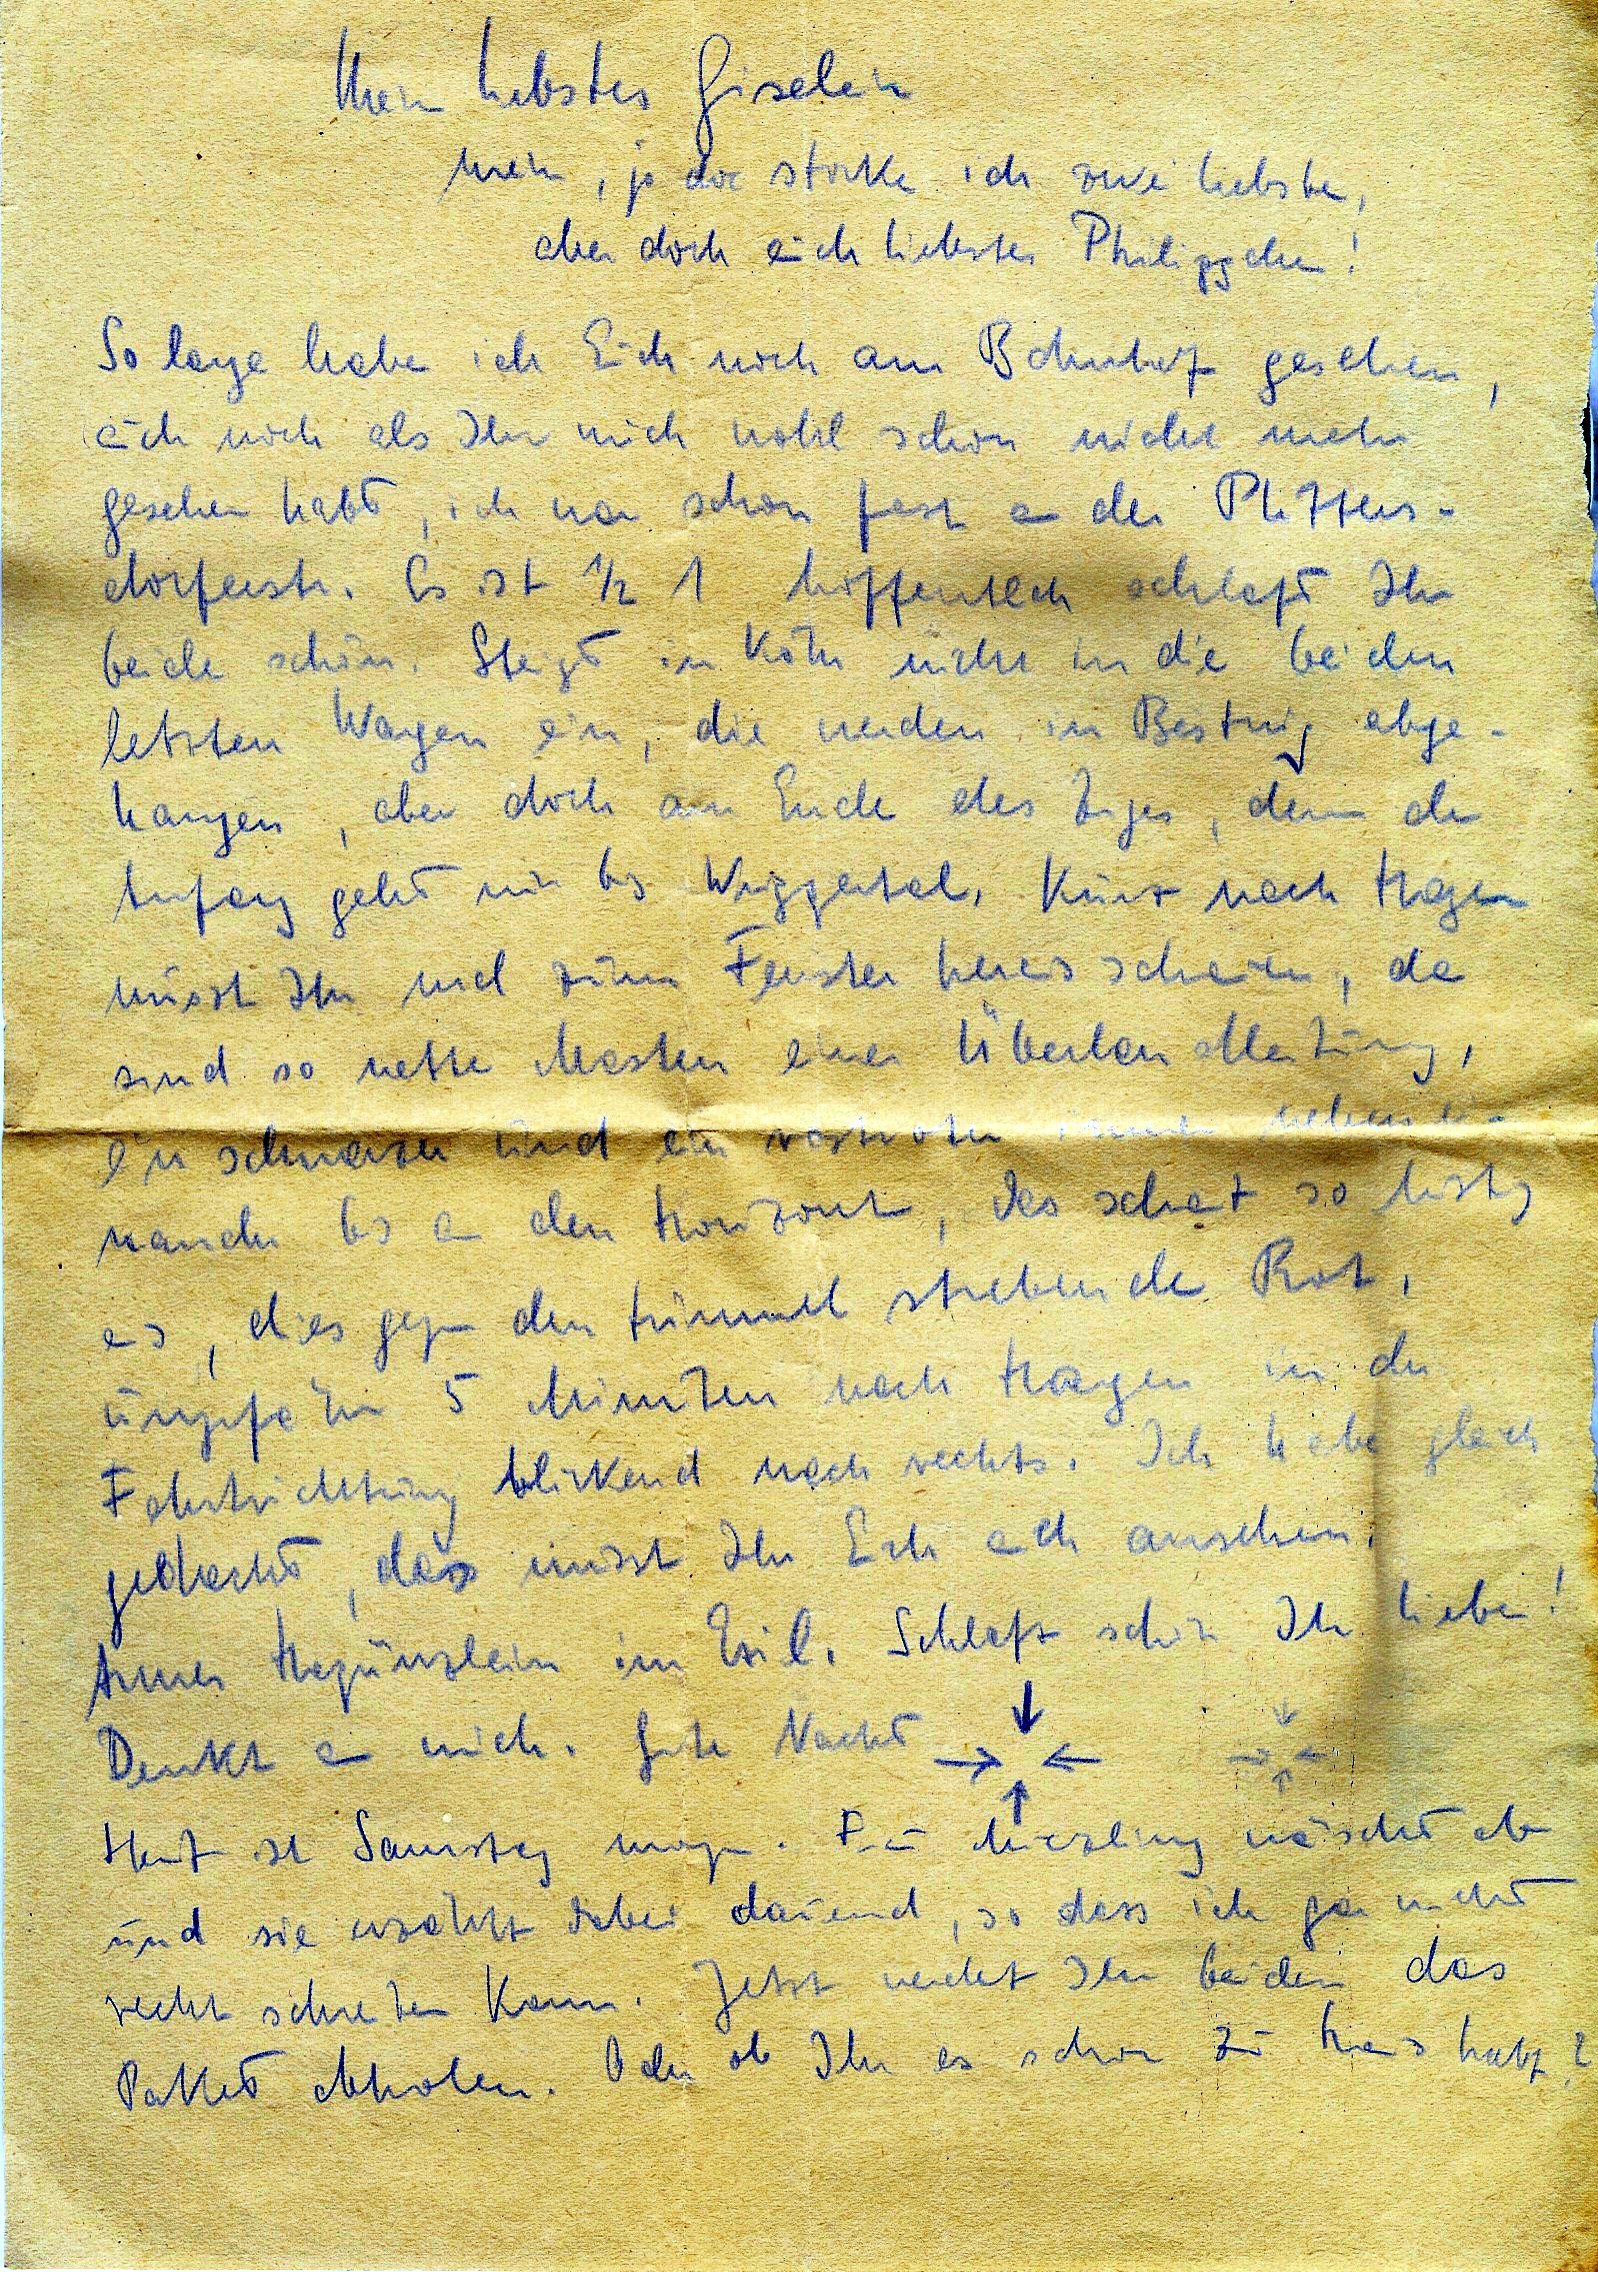 Mein liebstes Giselein
mein, ja da stocke ich zwei liebste,
aber doch auch liebstes Philippchen!
So lange habe ich Euch noch am Bahnhof gesehen,
auch noch als Ihr mich wohl schon nicht mehr
gesehen habt, ich war schon fast an der Plitters-
dorferstr. Es ist ½ 1 hoffentlich schlaft Ihr
beide schön. Steigt in Köln nicht in die beiden
letzten Wagen ein, die werden in Bestwig abge-
hangen, aber doch am Ende des Zuges, denn der
Anfang geht nur bis Wuppertal. Kurz nach Hagen
müsst Ihr mal zum Fenster herausschauen, da
sind so nette Masten einer Überlandleitung,
ein schwarzer und ein rostroter immer nebenei-
nander bis an den Horizont, das schaut so lustig
aus, dies gegen den Himmel strebende Rot,
ungefähr 5 Minuten nach Hagen in der
Fahrtrichtung blickend nach rechts. Ich habe gleich
gedacht, das müsst Ihr Euch auch ansehen.
Armes im Exil. Schlaft schön Ihr lieben!
Denkt an mich. Gute Nacht
Heut ist Samstag morgen. Frau wäscht ab
und sie erzählt dabei dauernd, so dass ich gar nicht
recht schreiben kann. Jetzt werdet Ihr beiden das
Paket abholen. Oder ob Ihr es schon zu Haus habt?